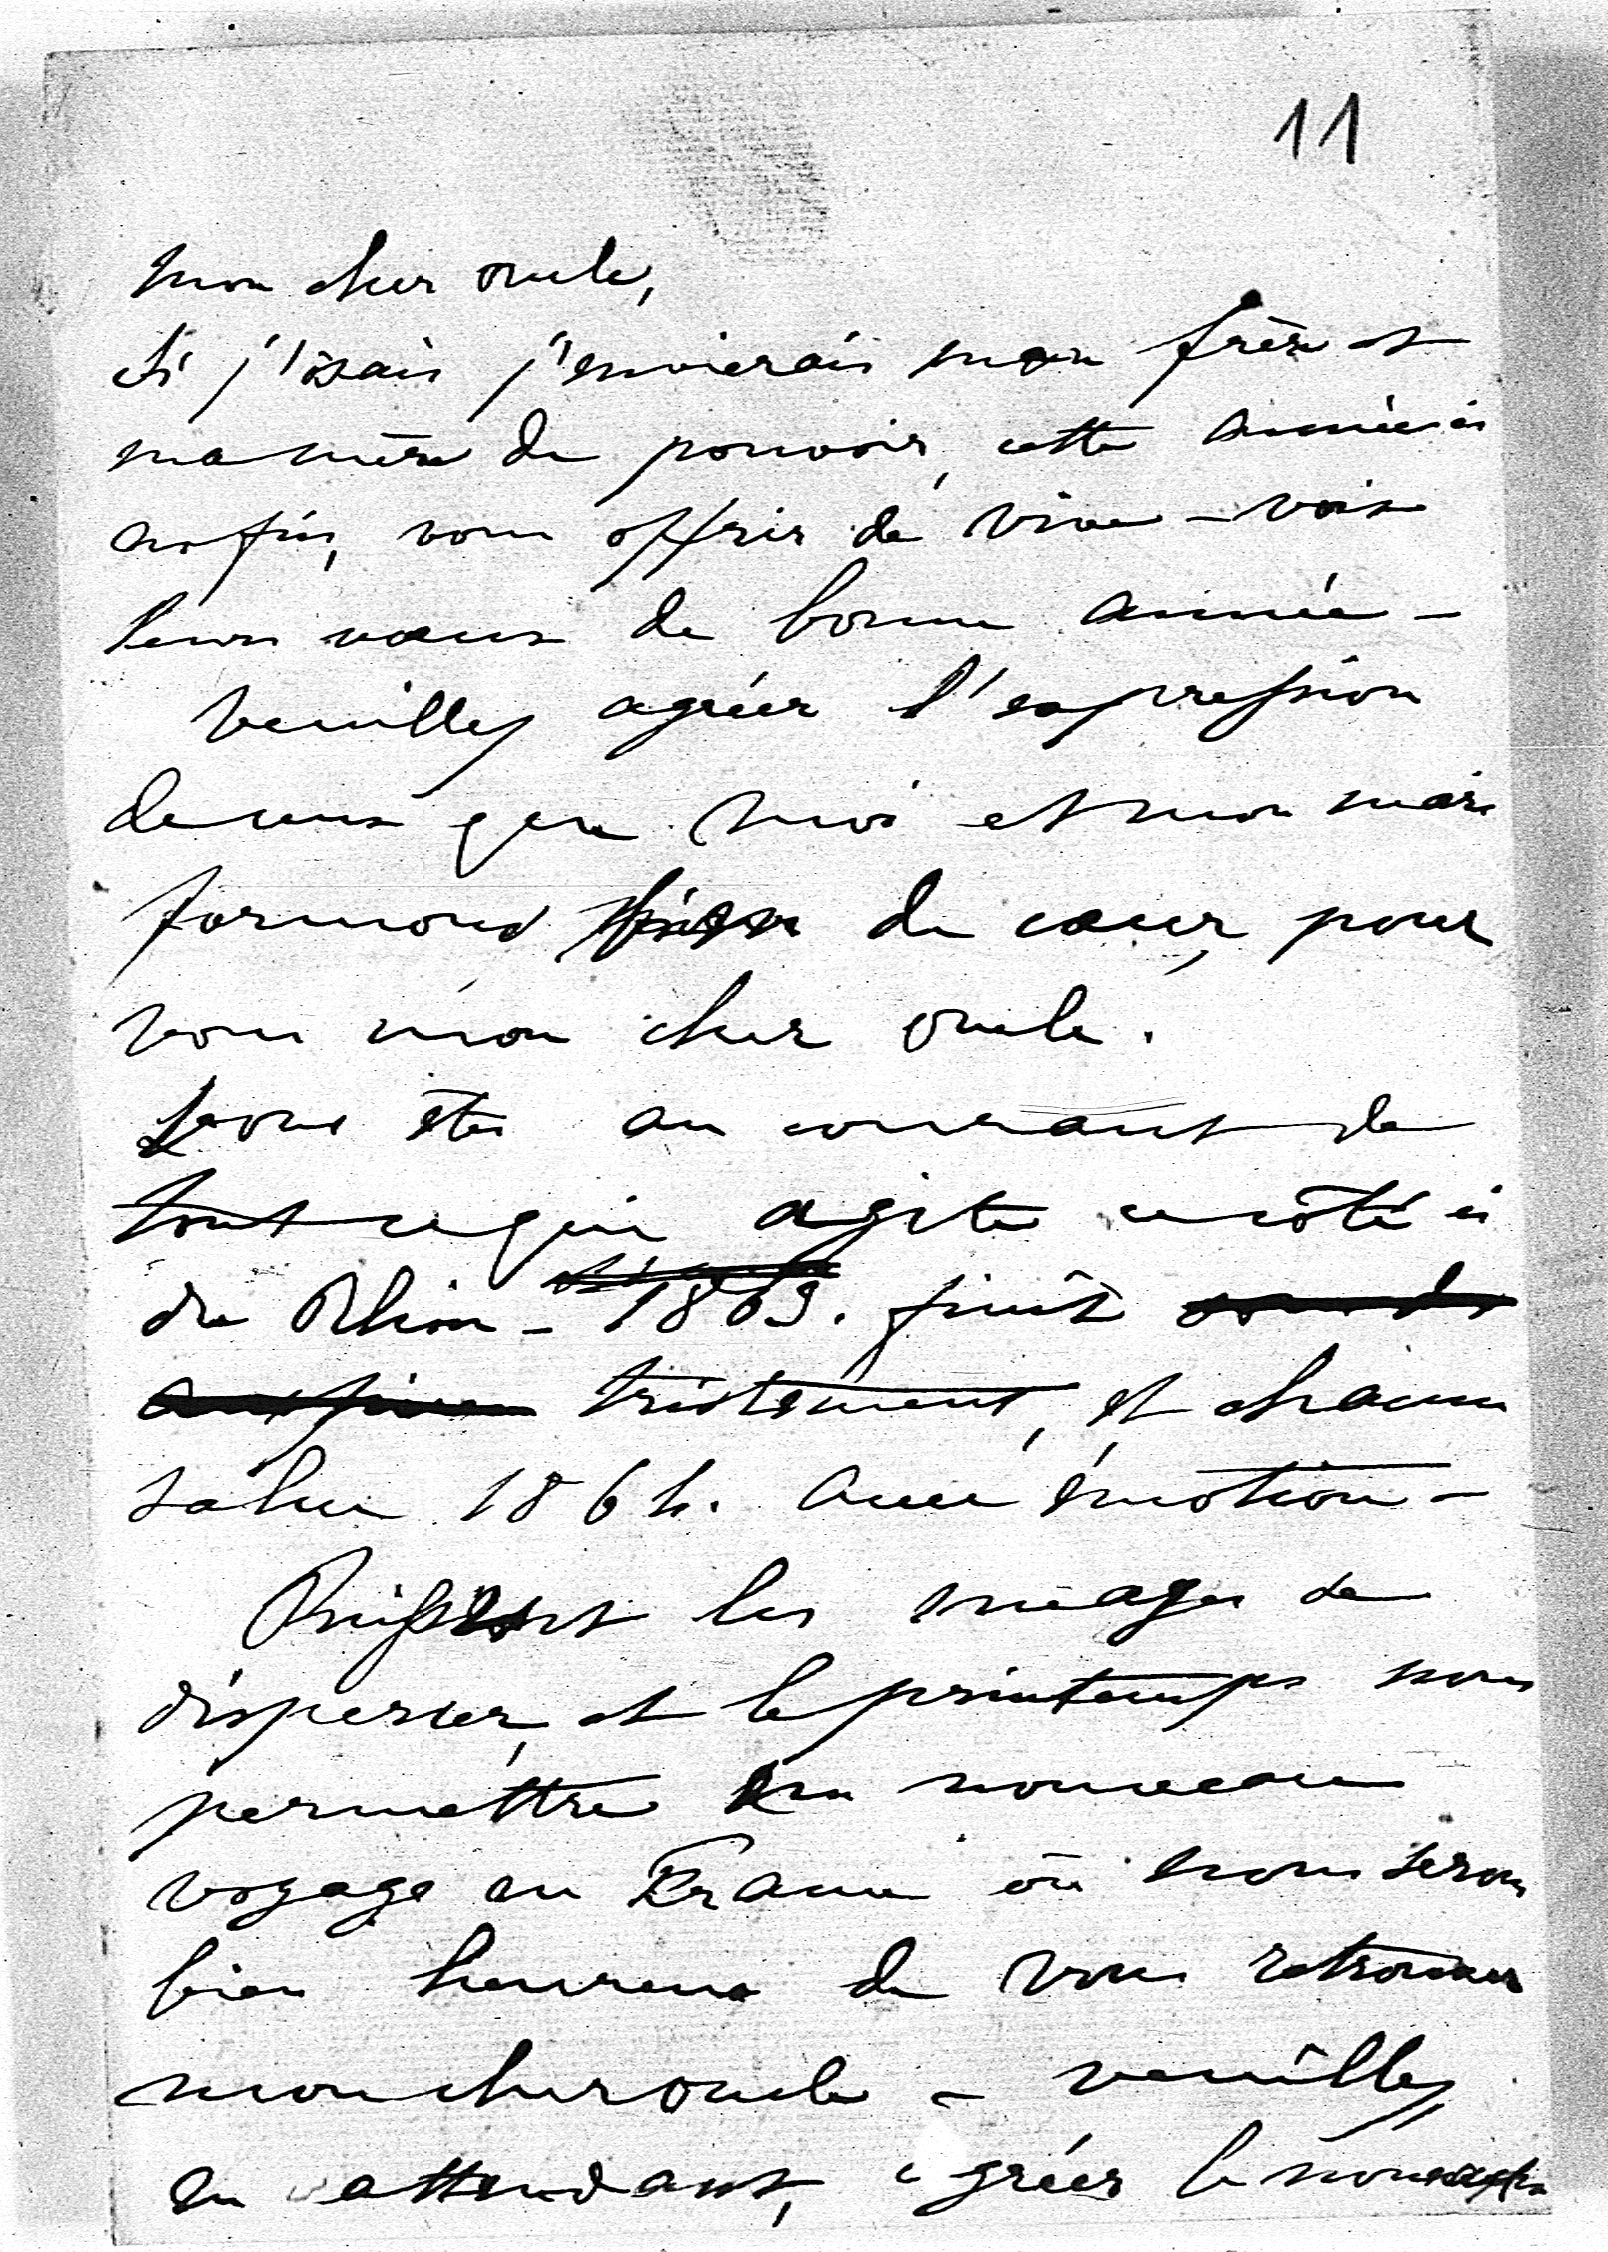 11
mon cher oncle,
Si j'osais j'envierais mon frère et
ma mère de pouvoir, cette année ci
enfin, vous offrir de vive-voix
leurs vœux de bonne année -
Veuillez agréer l'expression
de ceux que moi et mon mari
formons de cœur, pour
vous mon cher oncle.
Vous êtes au courant de
tout ce qui agite ce côté ci
du Rhin - 1863. finit
tristement, et chacun
salue 1864. avec émotion -
Puissent les nuages se
disperser, et le printemps nous
permettre un nouveau
voyage en France où nous serons
bien heureux de vous retrouver
mon cher oncle - veuillez
en attendant, agréer le nouveau